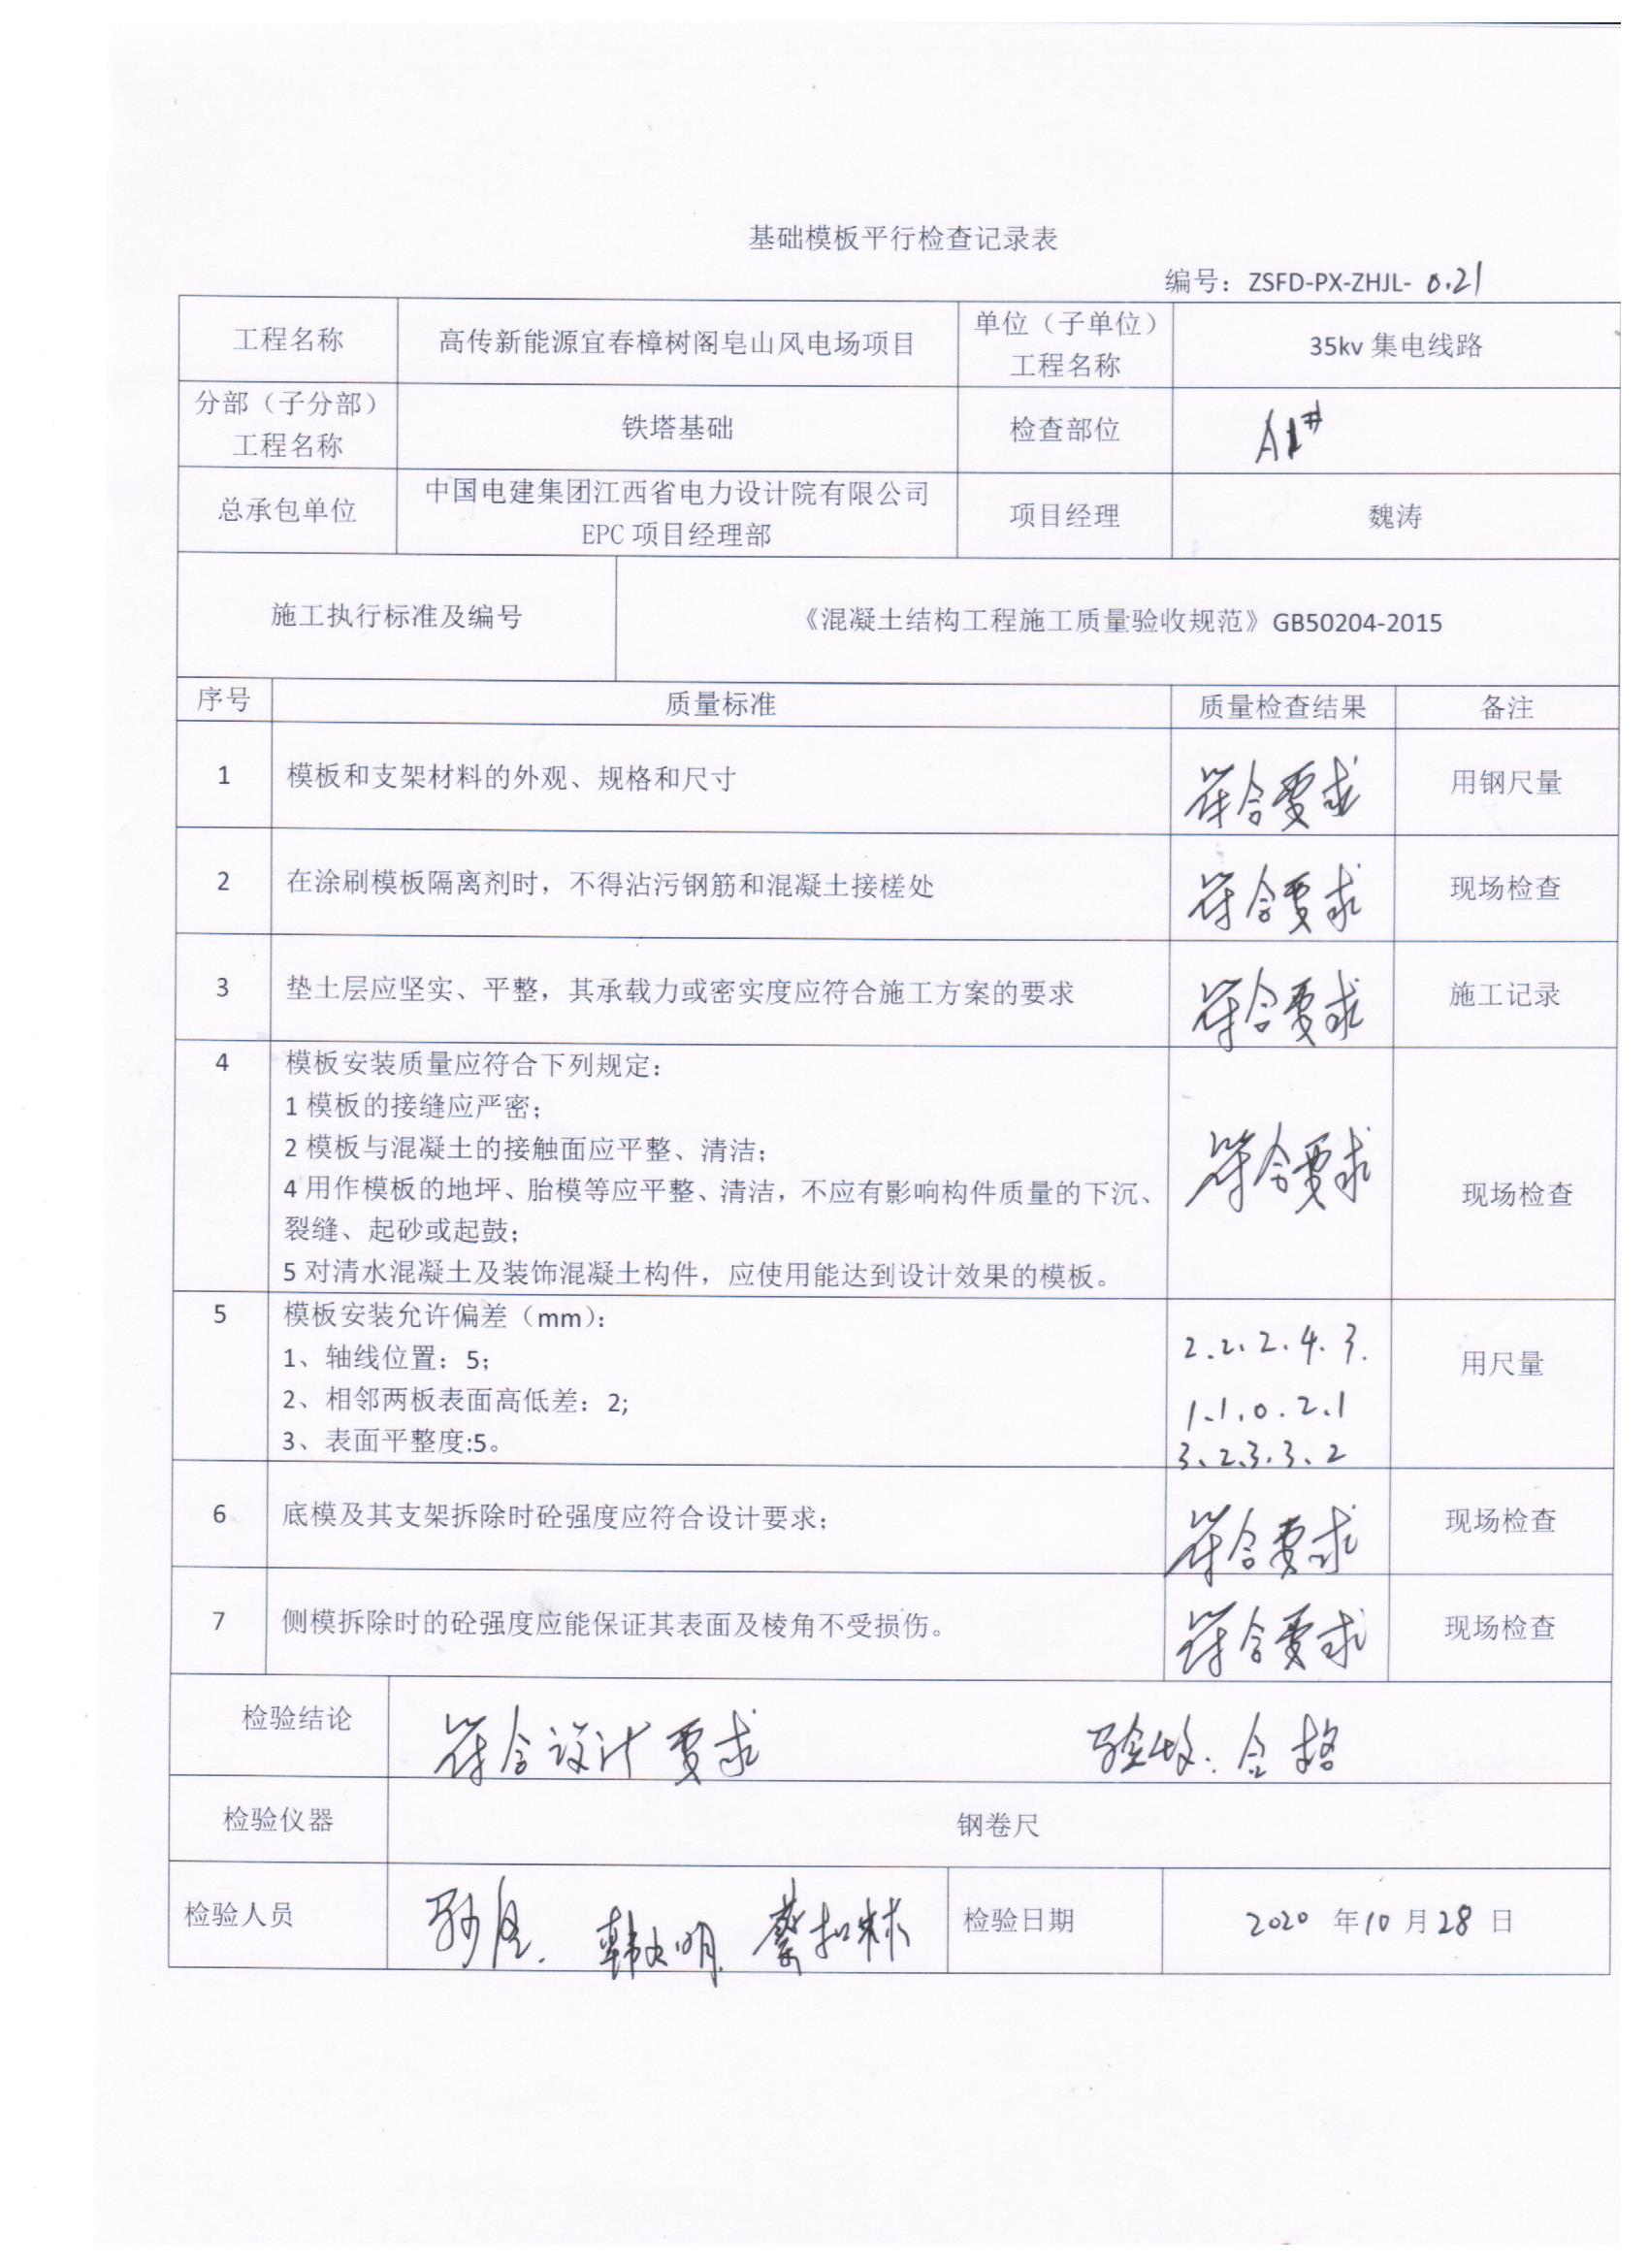 基础模板平行检查记录表
编号：ZSFD-PX-ZHJL- 0.21
工程名称 高传新能源宜春樟树阁皂山风电场项目 单位（子单位）工程名称 35kv 集电线路
分部（子分部）工程名称 铁塔基础 检查部位 A1#
总承包单位 中国电建集团江西省电力设计院有限公司 EPC 项目经理部 项目经理 魏涛
施工执行标准及编号 《混凝土结构工程施工质量验收规范》GB50204-2015
序号 质量标准 质量检查结果 备注
1 模板和支架材料的外观、规格和尺寸 符合要求 用钢尺量
2 在涂刷模板隔离剂时，不得沾污钢筋和混凝土接槎处 符合要求 现场检查
3 垫土层应坚实、平整，其承载力或密实度应符合施工方案的要求 符合要求 施工记录
4 模板安装质量应符合下列规定：
1 模板的接缝应严密；
2 模板与混凝土的接触面应平整、清洁；
4 用作模板的地坪、胎模等应平整、清洁，不应有影响构件质量的下沉、
裂缝、起砂或起鼓；
5 对清水混凝土及装饰混凝土构件，应使用能达到设计效果的模板。
符合要求 现场检查
5 模板安装允许偏差（mm）：
1、轴线位置：5； 2.2.2.4.3.
2、相邻两板表面高低差：2; 1.1.0.2.1
3、表面平整度:5。 3、2、3.3、2
用尺量
6 底模及其支架拆除时砼强度应符合设计要求； 符合要求 现场检查
7 侧模拆除时的砼强度应能保证其表面及棱角不受损伤。 符合要求 现场检查
检验结论 符合设计要求 验收.合格
检验仪器 钢卷尺
检验人员 检验日期 2020 年 10 月 28 日